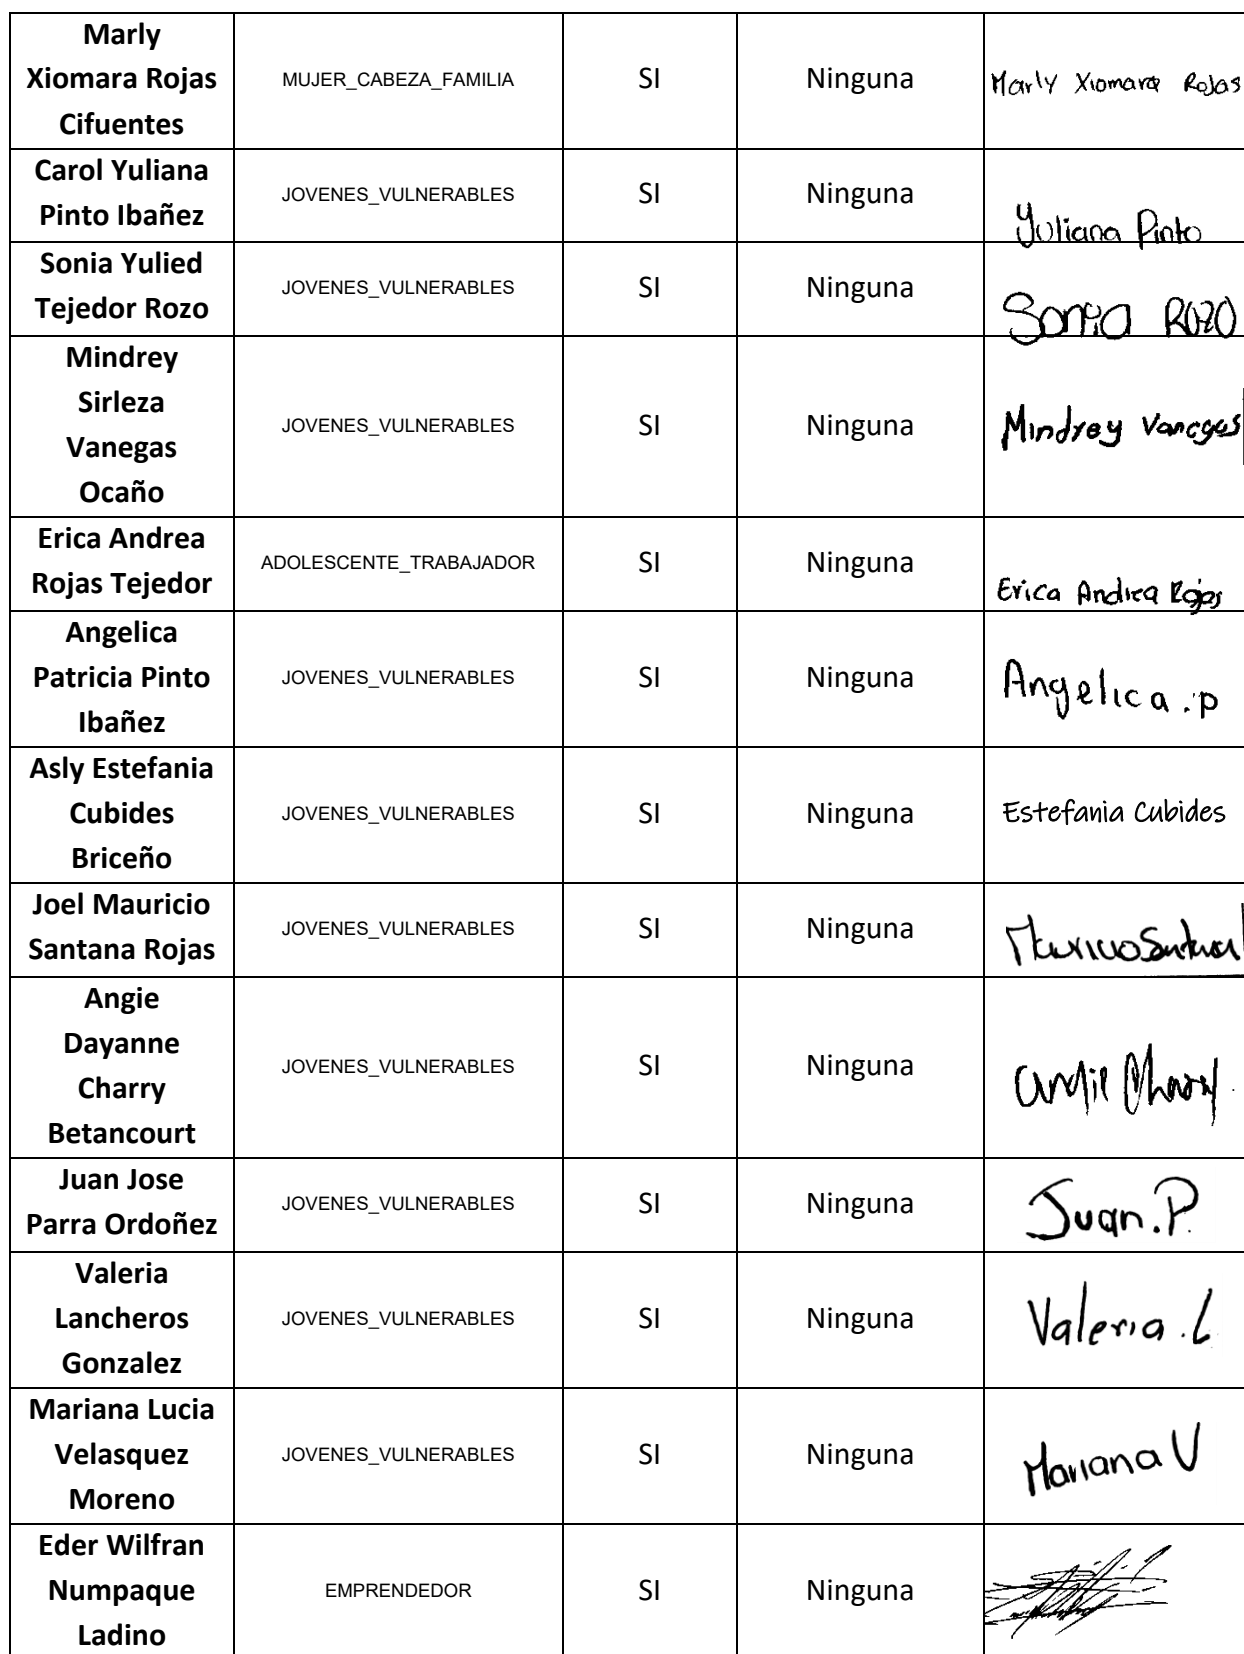 Marly
Xiomara Rojas
Cifuentes
MUJER_CABEZA_FAMILIA
SI
Ninguna
Marly Xiomara Rojas
Carol Yuliana
Pinto Ibañez
JOVENES_VULNERABLES
SI
Ninguna
Yuliana Pinto
Sonia Yulied
Tejedor Rozo
JOVENES_VULNERABLES
SI
Ninguna
Sonia Rozo
Mindrey
Sirleza
Vanegas
Ocaño
JOVENES_VULNERABLES
SI
Ninguna
Mindrey Vanegas
Erica Andrea
Rojas Tejedor
ADOLESCENTE_TRABAJADOR
SI
Ninguna
Erica Andrea Rojas
Angelica
Patricia Pinto
Ibañez
JOVENES_VULNERABLES
SI
Ninguna
Angelica .p
Asly Estefania
Cubides
Briceño
JOVENES_VULNERABLES
SI
Ninguna
Estefania Cubides
Joel Mauricio
Santana Rojas
JOVENES_VULNERABLES
SI
Ninguna
Mauricio Santana
Angie
Dayanne
Charry
Betancourt
JOVENES_VULNERABLES
SI
Ninguna
Angie Charry
Juan Jose
Parra Ordoñez
JOVENES_VULNERABLES
SI
Ninguna
Juan.P.
Valeria
Lancheros
Gonzalez
JOVENES_VULNERABLES
SI
Ninguna
Valeria.L
Mariana Lucia
Velasquez
Moreno
JOVENES_VULNERABLES
SI
Ninguna
Mariana V
Eder Wilfran
Numpaque
Ladino
EMPRENDEDOR
SI
Ninguna